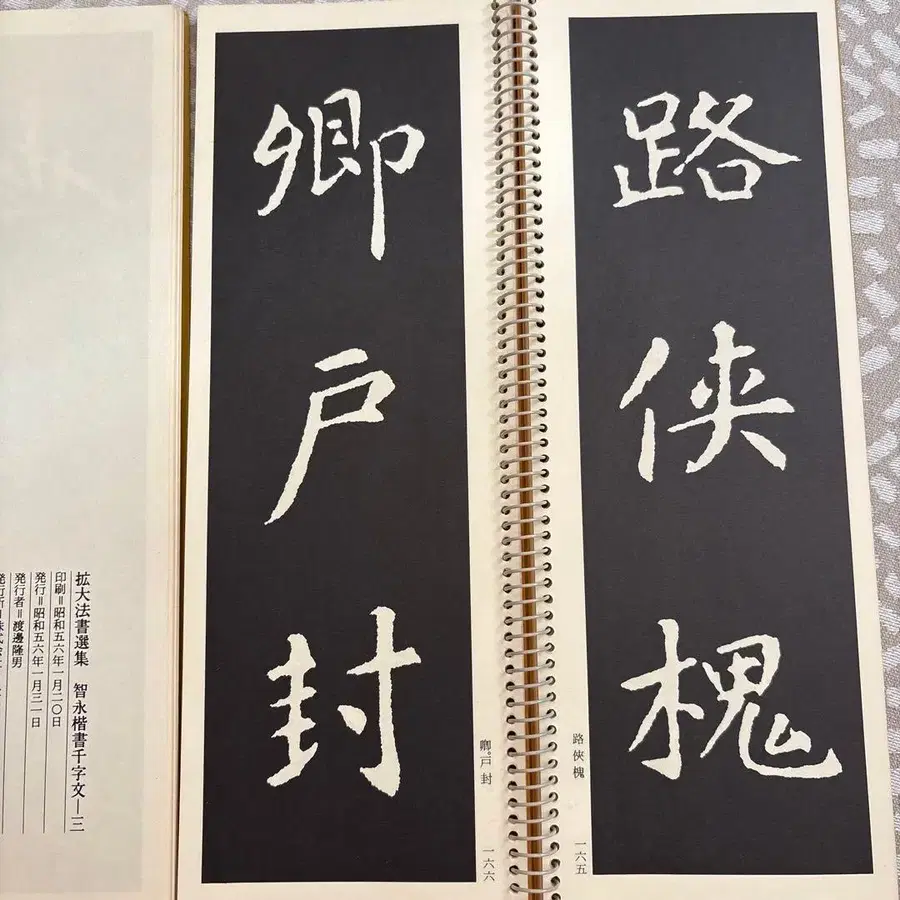 路侠槐
路侠槐
一六五
卿戸封
卿戸封
一六六
拡大法書選集 智永楷書千字文—三
印刷＝昭和五六年一月二〇日
発行＝昭和五六年一月三一日
発行者＝渡邊隆男